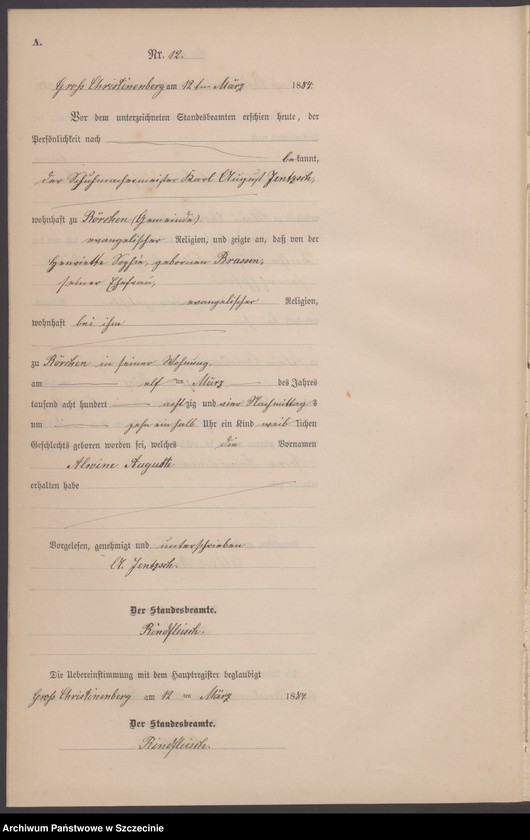 A.
Nr. 12.
Groß Christinenberg am 12 ten März 1884.
Vor dem unterzeichneten Standesbeamten erschien heute, der
Persönlichkeit nach
bekannt,
der Schuhmachermeister Karl August Jentzsch,
wohnhaft zu Rörchen (Gemeinde)
evangelischer Religion, und zeigte an, daß von der
Henriette Sophie, gebornen Brassen,
seiner Ehefrau,
evangelischer Religion,
wohnhaft bei ihm
zu Rörchen in seiner Wohnung,
am elf ten März des Jahres
tausend acht hundert achtzig und vier Nachmittags
um zehn ein halb Uhr ein Kind weiblichen
Geschlechts geboren worden sei, welches die Vornamen
Alwine Auguste
erhalten habe
Vorgelesen, genehmigt und unterschrieben
A. Jentzsch.
Der Standesbeamte.
Rindfleisch.
Die Uebereinstimmung mit dem Hauptregister beglaubigt
Groß Christinenberg am 12 ten März 1884.
Der Standesbeamte.
Rindfleisch.
Archiwum Państwowe w Szczecinie